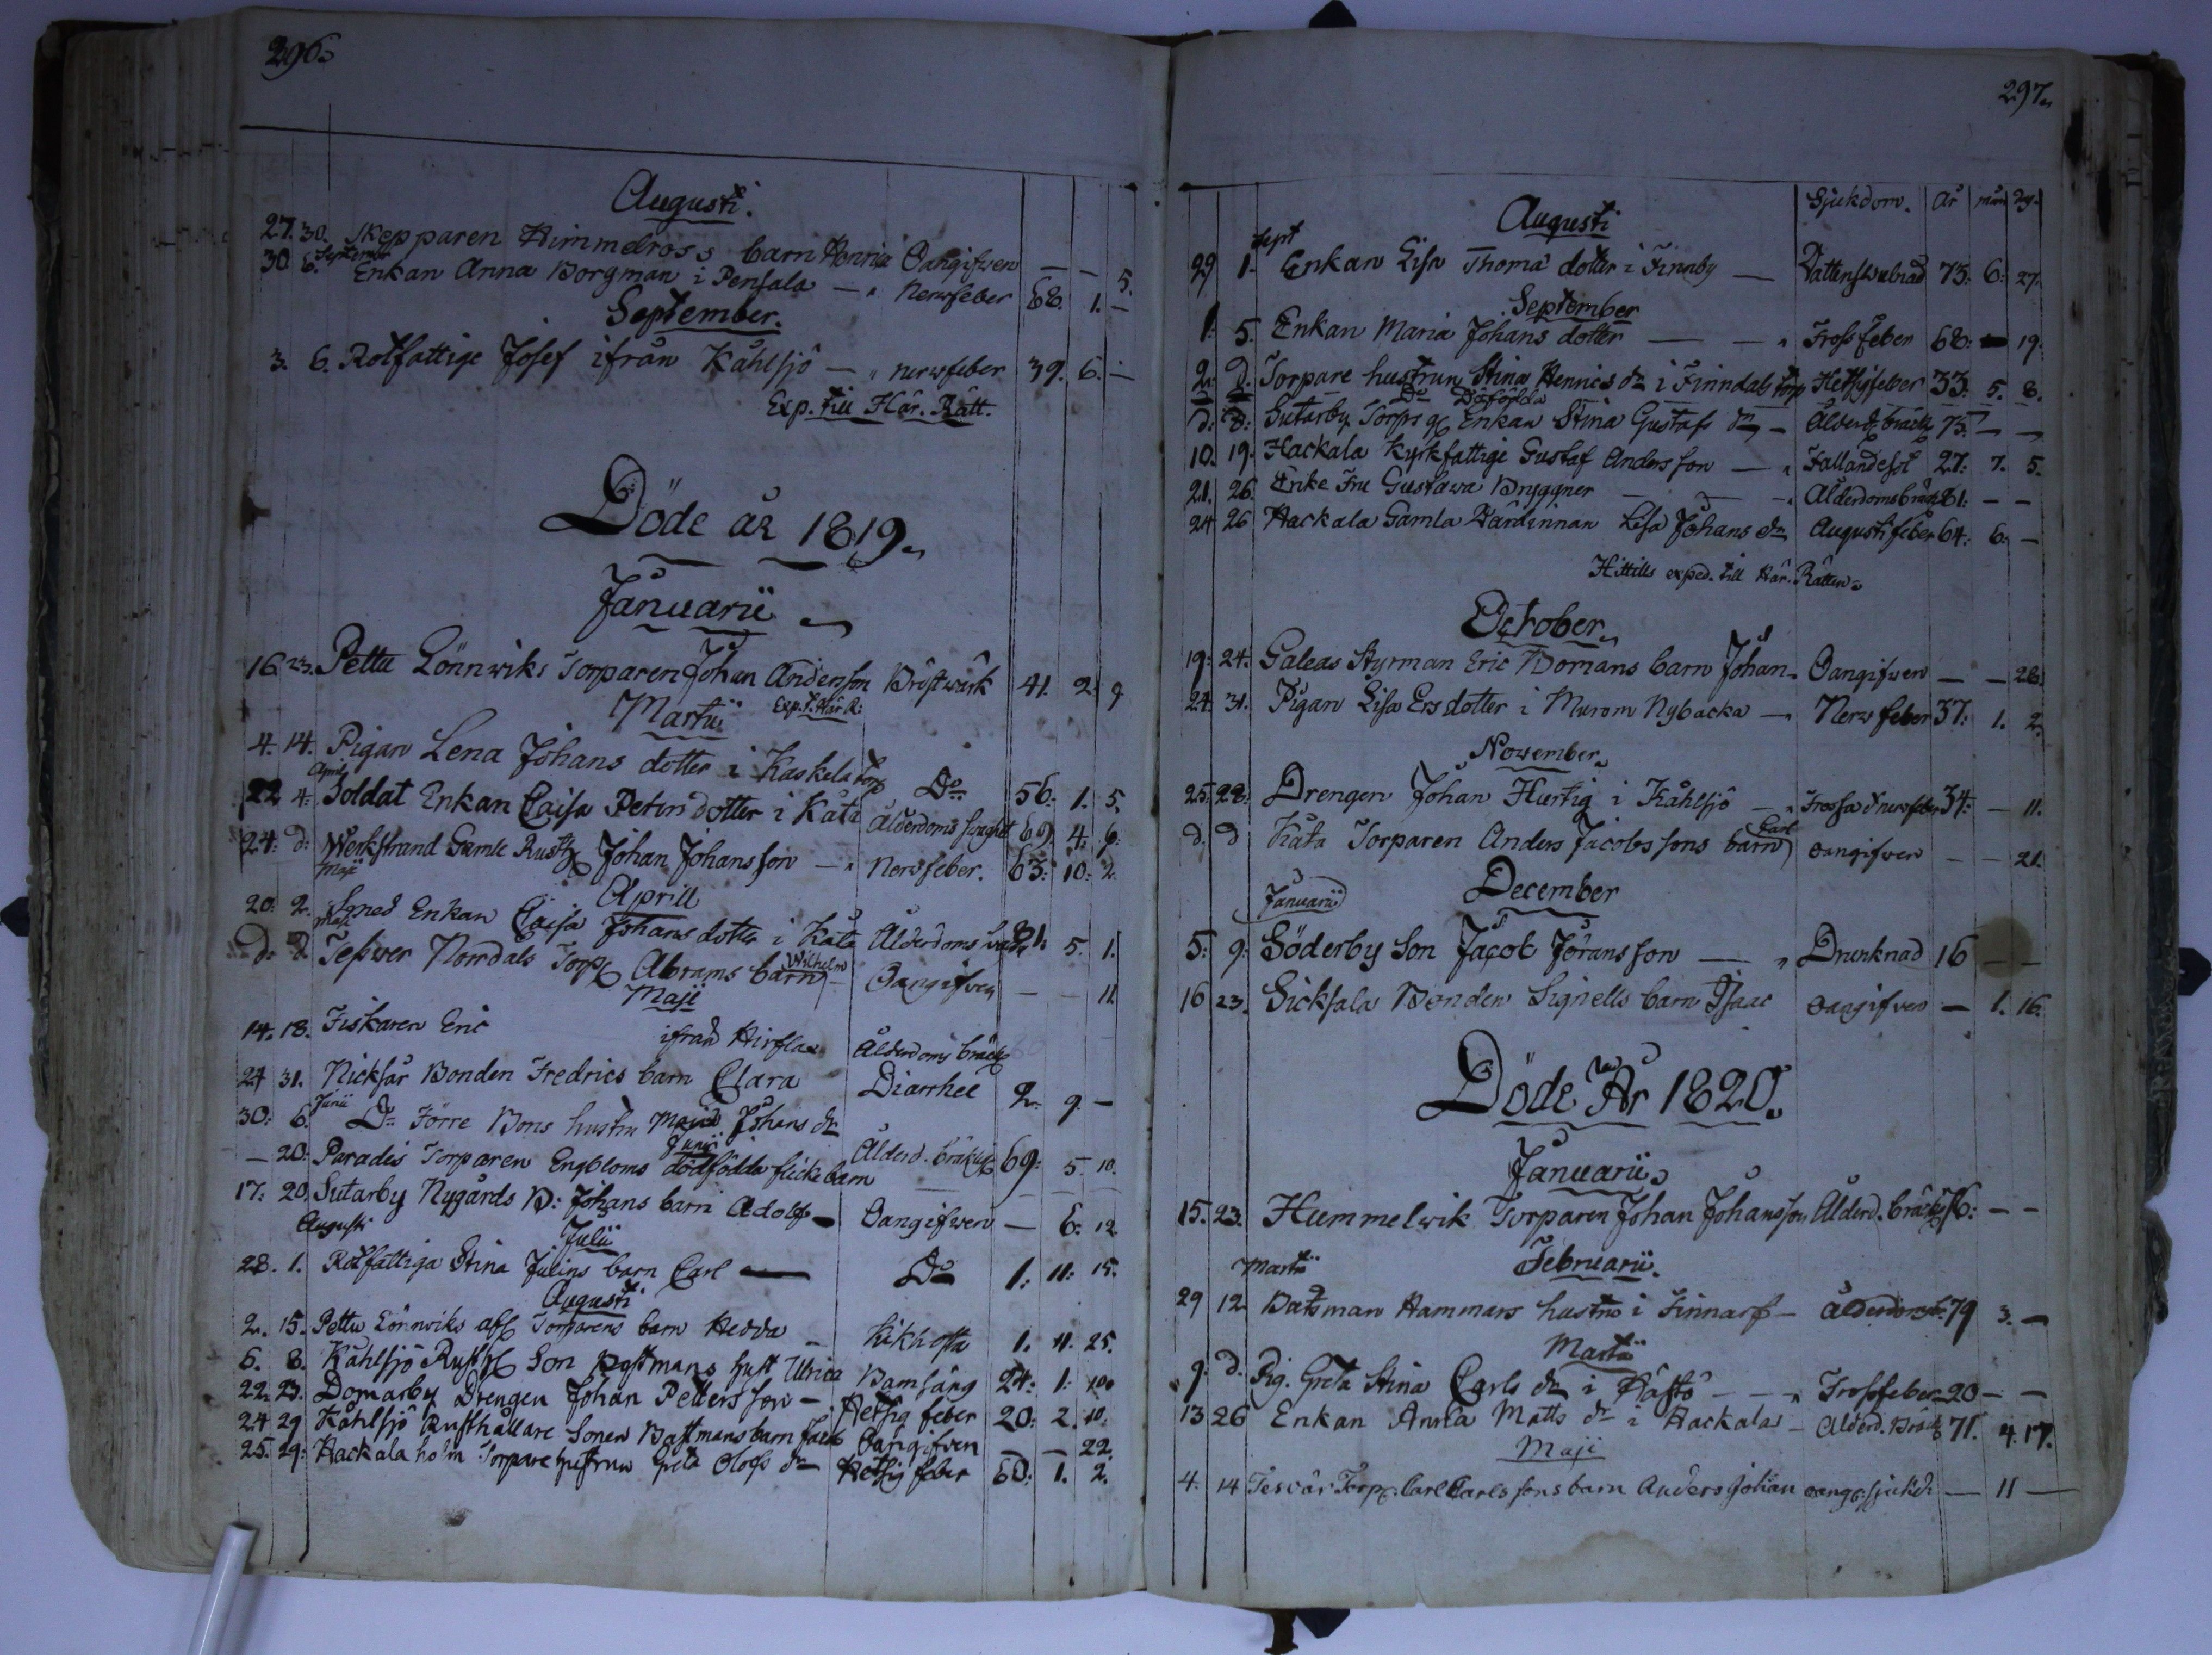 296.
Augusti.
27. 30. Skepparen Himmelross barn Henric Oangifwen — — 5.
September
30 6. Enkan Anna Borgman i Pensala — " Nerwfeber 68. 1. —
September.
3. 6. Rotfattige Josef ifrån Kåhlsjö — " nerwfeber 39. 6. —
Exp. till Här. Rätt.
Döde år 1819.
Januarii
16 23. Pettu Lönnwiks Torparen Johan Andersson Bröstwärk 41. 2. 9
Martii Exp. t. Här R:
4. 14. Pigan Lena Johans dotter i Kaskela torp Do 56. 1. 5.
April
22 4. Soldat Enkan Caisa Peters dotter i Kåta Ålderdoms 69. 4. 6.
24: d: Werkstrand Gamle Rusth Johan Johansson — " Nerwfeber. 63: 10: 2.
Maji Aprill
20. 2. Smed Enkan Caisa Johans dotter i Kåta Ålderdoms 81. 5. 1.
Maji Wilhelm
d. d. Teswer Norrdals Torp Abrams barn — Oangifwen — — 11.
Maji
14. 18. Fiskaren Eric ifrån Hirsla Ålderdoms bräck
24 31. Nicksår Bonden Fredrics barn Clara Diarrhee 2. 9. —
Junii
30: 6. Do Förre Bons hustru Maria Johans dr Ålderd. bräckl 69: 5. 10.
Junii
— 20. Paradis Torparen Engbloms dödfödda flickebarn
17: 20. Sutarby Nygårds B: Johans barn Adolf — Oangifwen — 6: 12.
Augusti Julii
28. 1. Rotfattiga Stina Julins barn Carl — Do 1: 11: 15.
Augusti
2. 15. Pettu Lönnwiks afs Torparens barn Hedda — Kikhosta 1. 11. 25.
6. 8. Kåhlsjö Rusth Son Bastmans hust Ulrica Barnsäng 24: 1: 10
22. 23. Domarby Drengen Johan Pettersson — Hetsig feber 20: 2. 10.
24 29 Kåhlsjö Rusthållare Sonen Bastmans barn Jacob Oangifven — — 22.
25. 29: Hackala holm Torpare hustrun Greta Olofs dr — Hetsig feber 60: 1. 2.
297.
Sjukdom. år mån dg.
Augusti
Sept
29 1. Enkan Lisa Thomæ dotter i Finnby — Wattenswulnad 75: 6: 27.
September
1. 5. Enkan Maria Johans dotter — — " Frossfeber 68: — 19.
2. d. Torpare hustrun Stina Henrics dr i Finndals torp Hetsigfeber 33. 5. 8.
Do Döfödda
d: 8: Sutarby Torps Enkan Stina Gustafs dr — Ålderd. bräckl 75. — —
10. 19. Hackala Kyrkfattige Gustaf Andersson — " Fallandesot 27: 7. 5.
21. 26. Enke Fru Gustawa Bryggner — — " Ålderdoms bräck 81: — —
24 26 Hackala Gamla Wärdinnan Lisa Johans dr Augusti feber 64: 6. —
Hittills exped. till Här. Rätten.
October.
19: 24. Galeas Styrman Eric Bomans barn Johan — Oangifwen — — 28.
24. 31. Pigan Lisa Ers dotter i Murom Nybacka — " Nerwfeber 37: 1. 2.
November.
25. 28. Drengen Johan Hurtig i Kåhlsjö — " Frossa o nerwfeber 34: — 11.
Carl
d. d Kåta Torparen Anders Jacobssons barn oangifwen — — 21.
December
Januarii
5: 9: Söderby Son Jacob Jöransson — " Drunknad 16 — —
16 23. Sicksala Bonden Signells barn Isaac oangifwen — 1. 16.
Döde År 1820.
Januarii.
15. 23. Hummelwik Torparen Johan Johansson Ålderd. bräckl 76: — —
Februarii.
Martii
29 12. Båtsman Hammars hustru i Finnarf — Ålderdoms 79 3. —
Martii
9. d. Pig. Greta Stina Carls dr i Råftö — — " Frossfeber 20 — —
13 26 Enkan Anna Matts dr i Hackala — Ålderd. Bräckl 71. 4. 17.
Maji
4. 14 Tesvår Torp. Carl Carlssons barn Anders Johan oang. sjukd. — 11 —